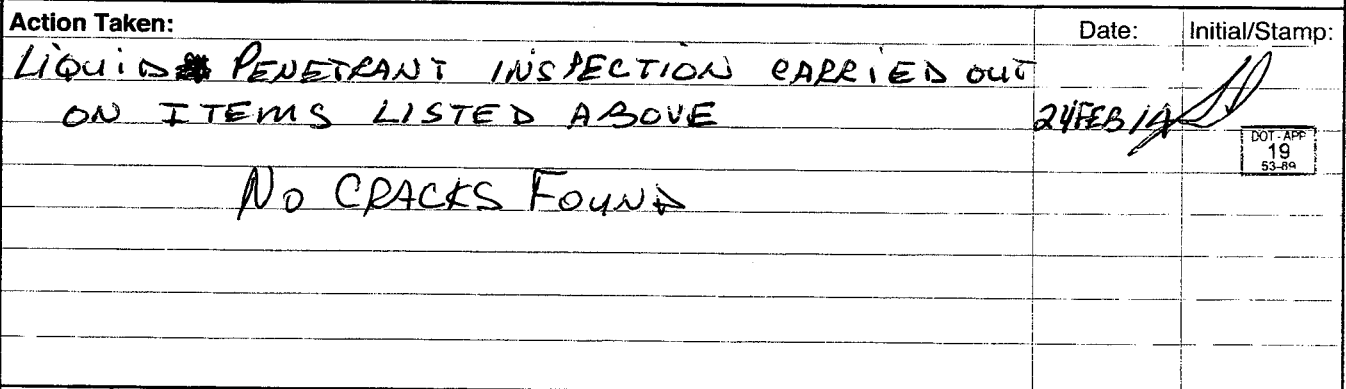 Action Taken: Date: Initial/Stamp:
LIQUID PENETRANT INSPECTION CARRIED OUT
ON ITEMS LISTED ABOVE 24FEB14
DOT-APP
19
53-89
NO CRACKS FOUND